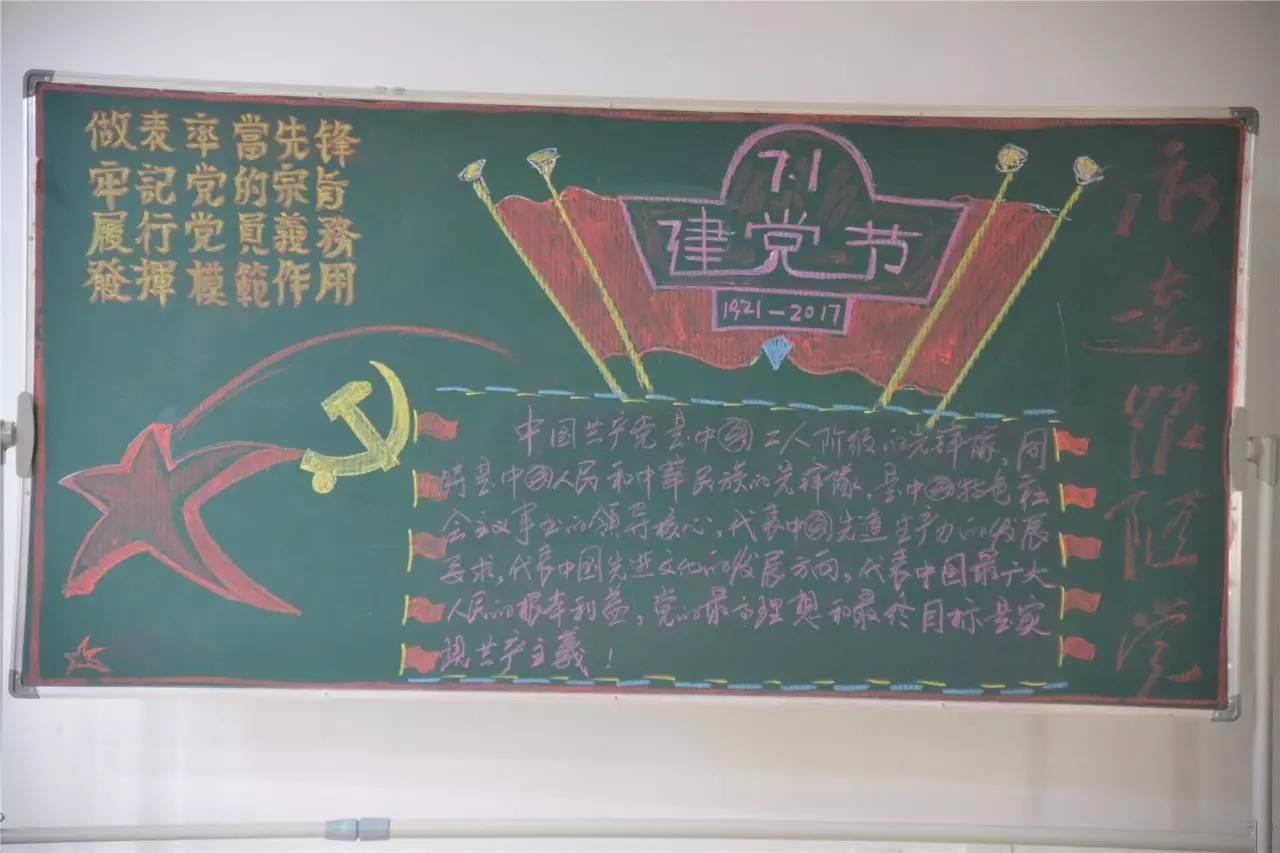 做表率當先锋
牢記党的宗旨
履行党員義務
發揮模範作用
7.1
建党节
1921-2017
中国共产党是中国工人阶级的先锋隊,同
时是中国人民和中華民族的先锋隊,是中国特色社
会主义事业的领导核心,代表中国先進生产力的发展
要求,代表中国先进文化的发展方向,代表中国最广大
人民的根本利益,党的最高理想和最终目标是实
現共产主義!
永遠跟随党